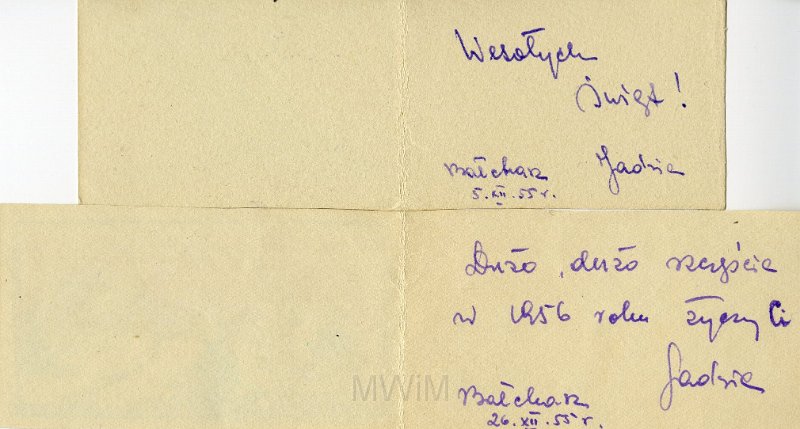 Wesołych
Świąt!
Bałchasz Jadzia
5.XII.55 r.
Dużo, dużo szczęścia
w 1956 roku życzy Ci
Jadzia
MWiM
Bałchasz
26.XII.55 r.